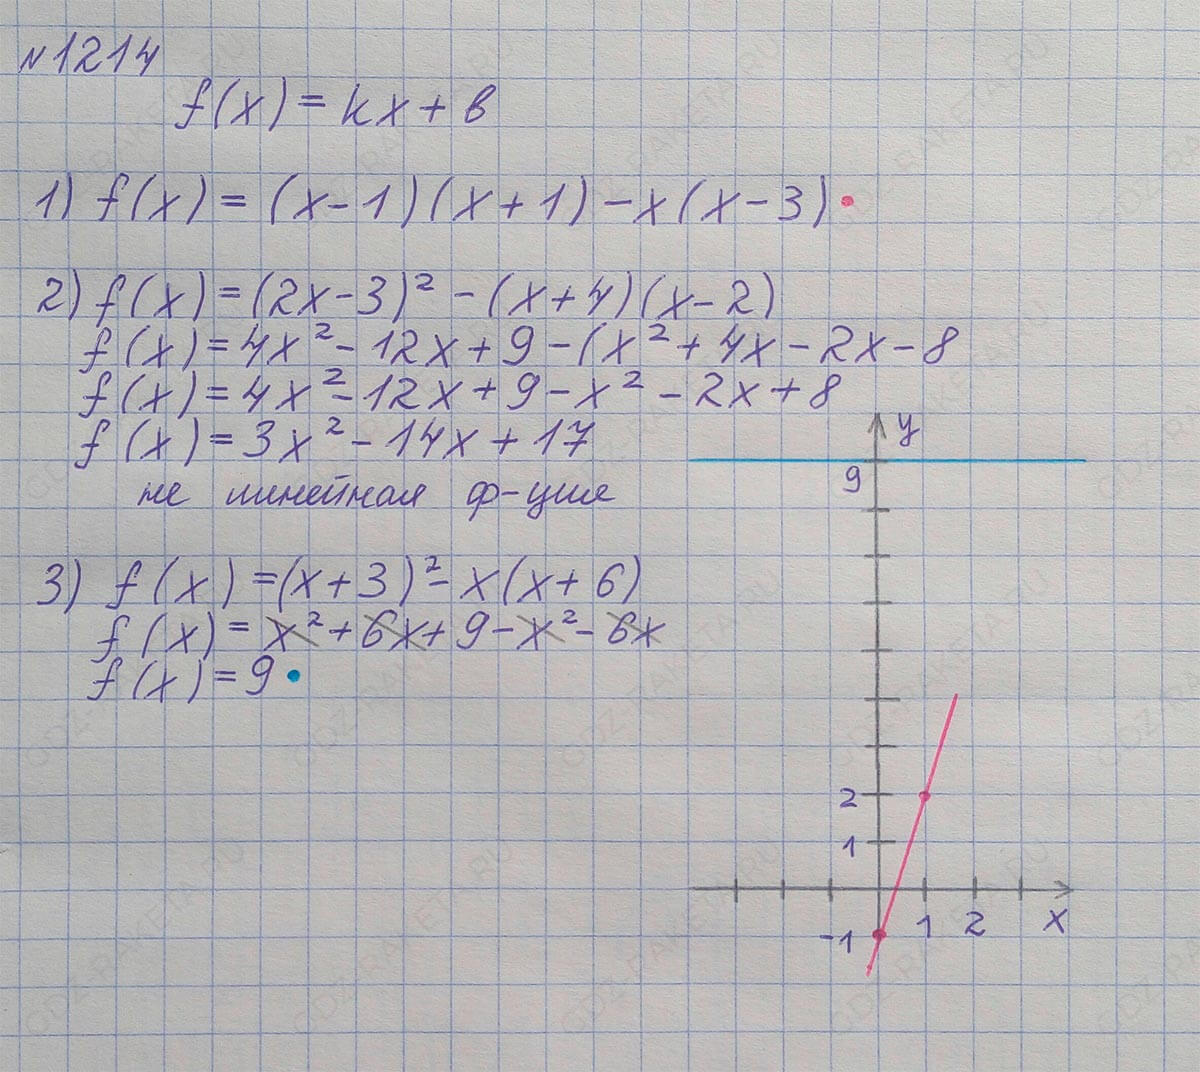 №1214
f(x) = kx + в
1) f(x) = (x-1)(x+1) - x(x-3)
2) f(x) = (2x-3)² - (x+4)(x-2)
f(x) = 4x² - 12x + 9 - (x² + 4x - 2x - 8
f(x) = 4x² - 12x + 9 - x² - 2x + 8
f(x) = 3x² - 14x + 17
не линейная ф-ция
3) f(x) = (x+3)² - x(x+6)
f(x) = x² + 6x + 9 - x² - 6x
f(x) = 9
y
9
2
1
-1
1 2 x
GDZ-RAKETA.RU